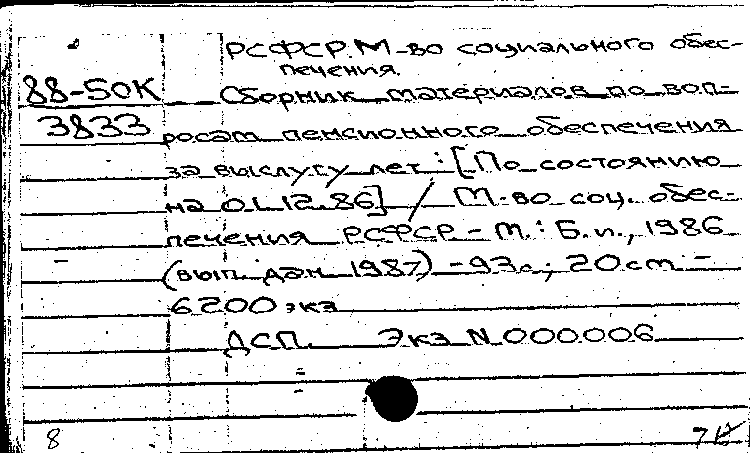 РСФСР. М-во социального обес-
печения.
88-50К Сборник материалов по воп-
3833 росам пенсионного обеспечения
за выслугу лет : [По состоянию
на 01.12.86] / М-во соц. обес-
печения РСФСР - М. : Б. и., 1986
(вып. дан. 1987) - 93 с ; 20 см -
6200 экз
ДСП. Экз N 000006
8